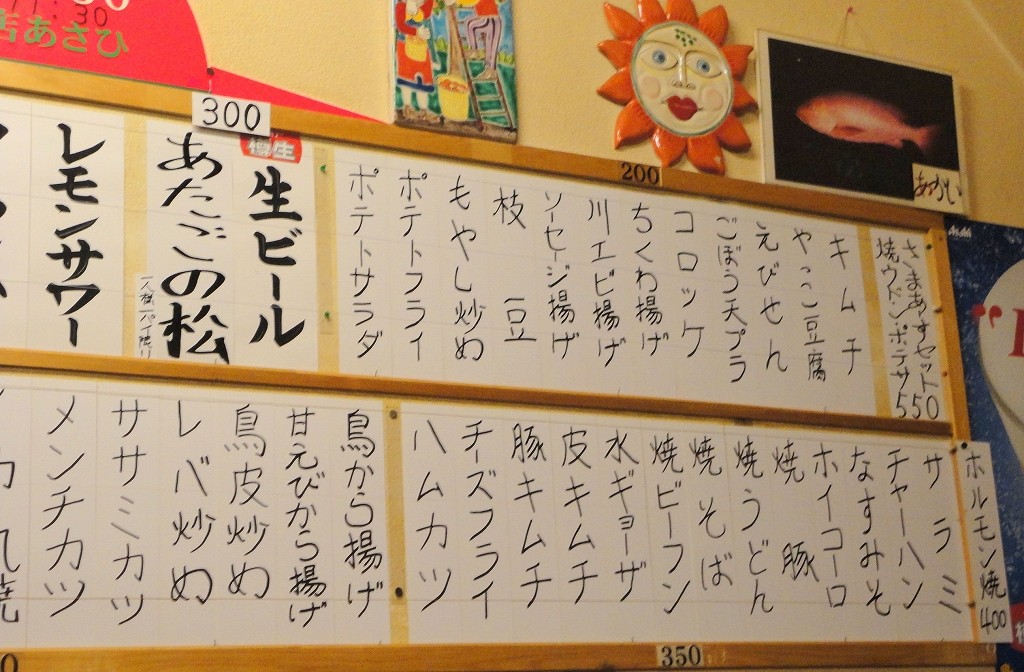 :30
店あさひ
300
200
あかい
Asahi
さまあずセット
焼ウドン ポテサ 550
キムチ
やっこ豆腐
えびせん
ごぼう天プラ
コロッケ
ちくわ揚げ
川エビ揚げ
ソーセージ揚げ
枝豆
もやし炒め
ポテトフライ
ポテトサラダ
樽生
生ビール
あたごの松
レモンサワー
ホルモン焼 400
サラミ
チャーハン
なすみそ
ホイコーロ
焼豚
焼うどん
焼そば
焼ビーフン
水ギョーザ
皮キムチ
豚キムチ
チーズフライ
ハムカツ
鳥から揚げ
甘えびから揚げ
鳥皮炒め
レバ炒め
ササミカツ
メンチカツ
350